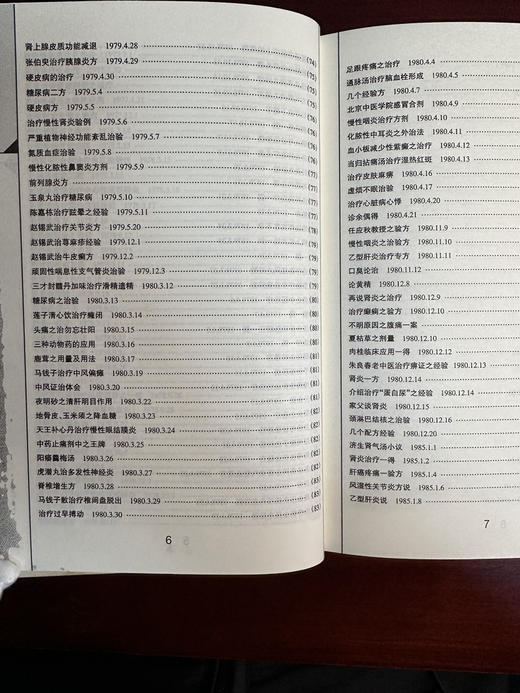 肾上腺皮质功能减退 1979.4.28 (74)
张伯臾治疗胰腺炎方 1979.4.29 (74)
硬皮病的治疗 1979.4.30 (75)
糖尿病二方 1979.5.4 (75)
硬皮病方 1979.5.5 (75)
治疗慢性肾炎验例 1979.5.6 (75)
严重植物神经功能紊乱治验 1979.5.7 (76)
氮质血症治验 1979.5.8 (76)
慢性化脓性鼻窦炎方剂 1979.5.9 (76)
前列腺炎方 (77)
玉泉丸治疗糖尿病 1979.5.10 (77)
陈嘉栋治疗眩晕之经验 1979.5.11 (77)
赵锡武治疗关节炎方 1979.5.20 (78)
赵锡武治荨麻疹经验 1979.12.1 (79)
赵锡武治牛皮癣方 1979.12.2 (79)
顽固性喘息性支气管炎治验 1979.12.3 (79)
三才封髓丹加味治疗滑精遗精 1980.3.12 (79)
糖尿病之治验 1980.3.13 (80)
莲子清心饮治疗癃闭 1980.3.14 (80)
头痛之治勿忘壮阳 1980.3.15 (80)
三种动物药的应用 1980.3.16 (80)
鹿茸之用量及用法 1980.3.17 (81)
马钱子治疗中风偏瘫 1980.3.19 (81)
中风证治体会 1980.3.20 (81)
夜明砂之清肝明目作用 1980.3.22 (82)
地骨皮、玉米须之降血糖 1980.3.23 (82)
天王补心丹治疗慢性眼结膜炎 1980.3.24 (82)
中药止痛剂中之王牌 1980.3.25 (82)
阳痿蠲梅汤 1980.3.26 (82)
虎潜丸治多发性神经炎 1980.3.27 (82)
脊椎增生方 1980.3.28 (83)
马钱子散治疗椎间盘脱出 1980.3.29 (83)
治疗过早搏动 1980.3.30 (83)
6
足跟疼痛之治疗 1980.4.4
通脉汤治疗脑血栓形成 1980.4.5
几个经验方 1980.4.7
北京中医学院感冒合剂 1980.4.9
慢性咽炎治疗方剂 1980.4.10
化脓性中耳炎之外治法 1980.4.11
血小板减少性紫癜之治疗 1980.4.12
当归拈痛汤治疗湿热红斑 1980.4.13
治疗皮肤麻痹 1980.4.16
虚烦不眠治验 1980.4.17
治疗心脏病心悸 1980.4.20
诊余偶得 1980.4.21
任应秋教授之验方 1980.11.9
慢性咽炎之治验方 1980.11.10
乙型肝炎治疗专方 1980.11.11
口臭论治 1980.11.12
论黄精 1980.12.8
再说肾炎之治疗 1980.12.9
治疗癫痫之验方 1980.12.10
不明原因之腹痛一案
夏枯草之剂量 1980.12.11
肉桂临床应用一得 1980.12.12
朱良春老中医治疗痹证之经验 1980.12.13
肾炎一方 1980.12.14
介绍治疗“蛋白尿”之经验 1980.12.14
家父谈肾炎 1980.12.15
颈淋巴结核之治验 1980.12.16
几个配方经验 1980.12.20
济生肾气汤小议 1985.1.1
肾炎治疗一得 1985.1.2
肝癌疼痛一验方 1985.1.4
风湿性关节炎方说 1985.1.6
乙型肝炎说 1985.1.8
7